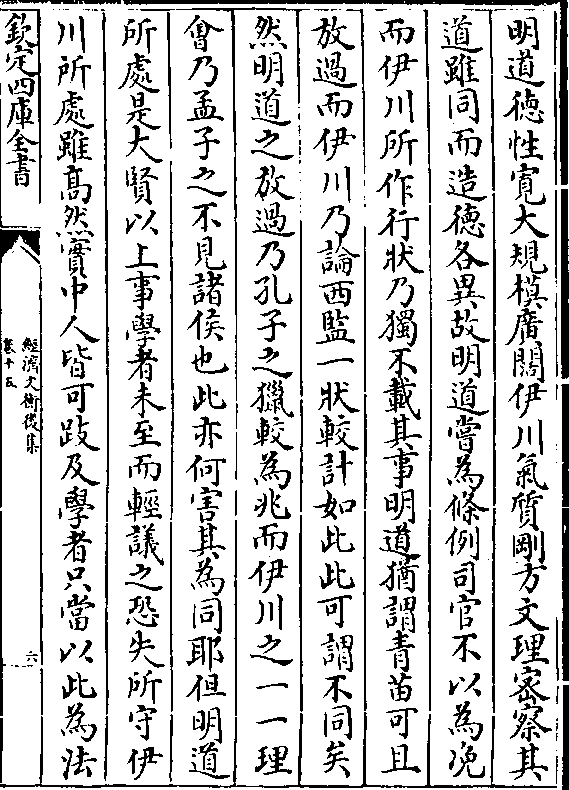 明道徳性寛大規模廣闊伊川氣質剛方文理密察其
道雖同而造徳各異故明道嘗為條例司官不以為浼
而伊川所作行狀乃獨不載其事明道猶謂青苗可且
放過而伊川乃論西監一狀較計如此此可謂不同矣
然明道之放過乃孔子之獵較為兆而伊川之一一理
㑹乃孟子之不見諸侯也此亦何害其為同耶但明道
所處是大賢以上事學者未至而輕議之恐失所守伊
川所處雖髙然實中人皆可跂及學者只當以此為法
欽定四庫全書
經濟文衡後集
卷十五
六